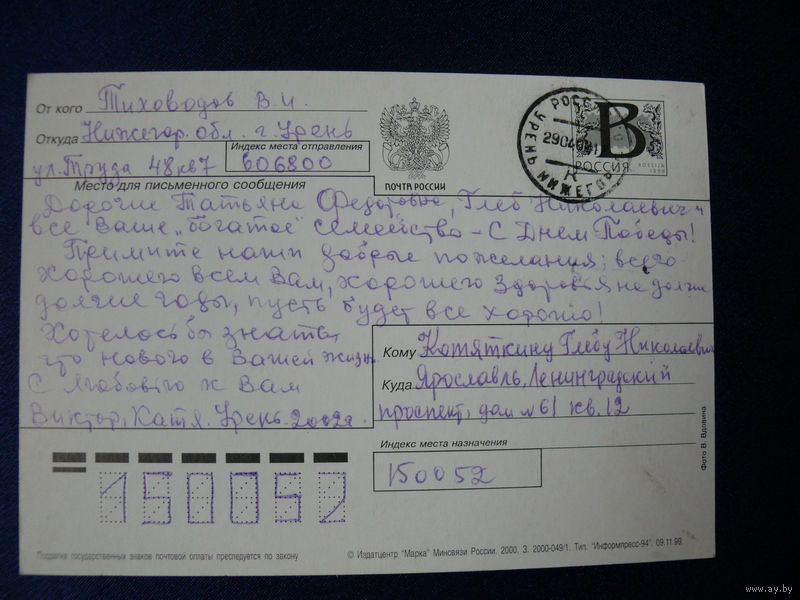 От кого Тиховодов В.И.
Откуда Нижегор. обл. г. Урень
Индекс места отправления
ул. Труда 48 кв7 606800
ПОЧТА РОССИИ
РОССИЯ
B
РОССИЯ
ROSSIJA
1999
УРЕНЬ НИЖЕГОР
Место для письменного сообщения
Дорогие Татьяна Федоровна, Глеб Николаевич и
все Ваше „богатое" семейство – С Днем Победы!
Примите наши добрые пожелания; всего
хорошего всем Вам, хорошего здоровья на долгие
долгие годы, пусть будет все хорошо!
Хотелось бы знать,
что нового в Вашей жизни
С любовью к Вам
Виктор, Катя. Урень. 2002г.
Кому Котяткину Глебу Николаевич
Куда Ярославль, Ленинградский
проспект, дом №61 кв. 12
Индекс места назначения
150052
150052
Фото В. Вдовина
Подделка государственных знаков почтовой оплаты преследуется по закону
© Издатцентр "Марка" Минсвязи России, 2000. З. 2000-049/1. Тип. "Информпресс-94". 09.11.99.
www.ay.by